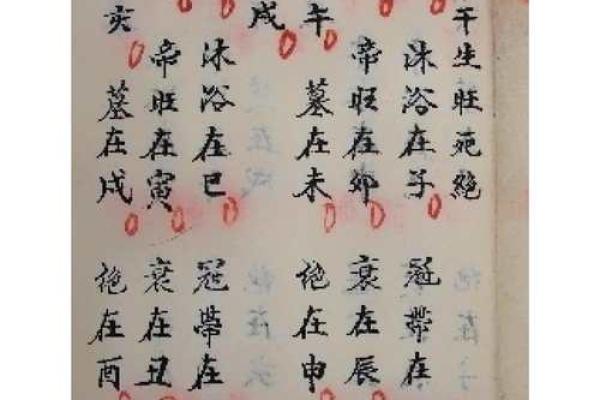 干生旺死絕
沐浴在子 冠帶在
帝旺在卯 衰在辰
午 墓在未 絕在申
戌
沐浴在巳 冠帶在
帝旺在寅 衰在丑
亥 墓在戌 絕在酉